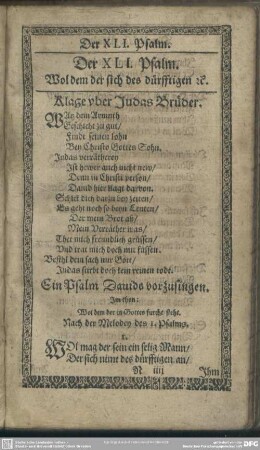 Der XLI. Psalm.
Der XLI. Psalm.
Wol dem der sich des dürfftigen ꝛc.
Klage vber Judas Brüder.
Was dem Armuth
Geschicht zu gut/
Findt seinen lohn
Bey Christo Gottes Sohn.
Judas verrätherey
Ist hewer auch nicht new/
Denn in Christi person/
Dauid hier klagt darvon.
Schick dich darzu bey zeiten/
Es geht noch so beyn Leuten/
Der mein Brot aß/
Mein Verräther was/
Thet mich freundlich grüssen/
Vnd trat mich doch mit füssen.
Befihl dein sach nur Gott/
Judas stirbt doch kein reinen todt.
Ein Psalm Dauids vorzusingen.
Im thon:
Wol dem der in Gottes furcht steht.
Nach der Melodey des 1. Psalms.
1.
WOl mag der sein ein selig Mann/
Der sich nimt des dürfftigen an/
N iiij
Ihm